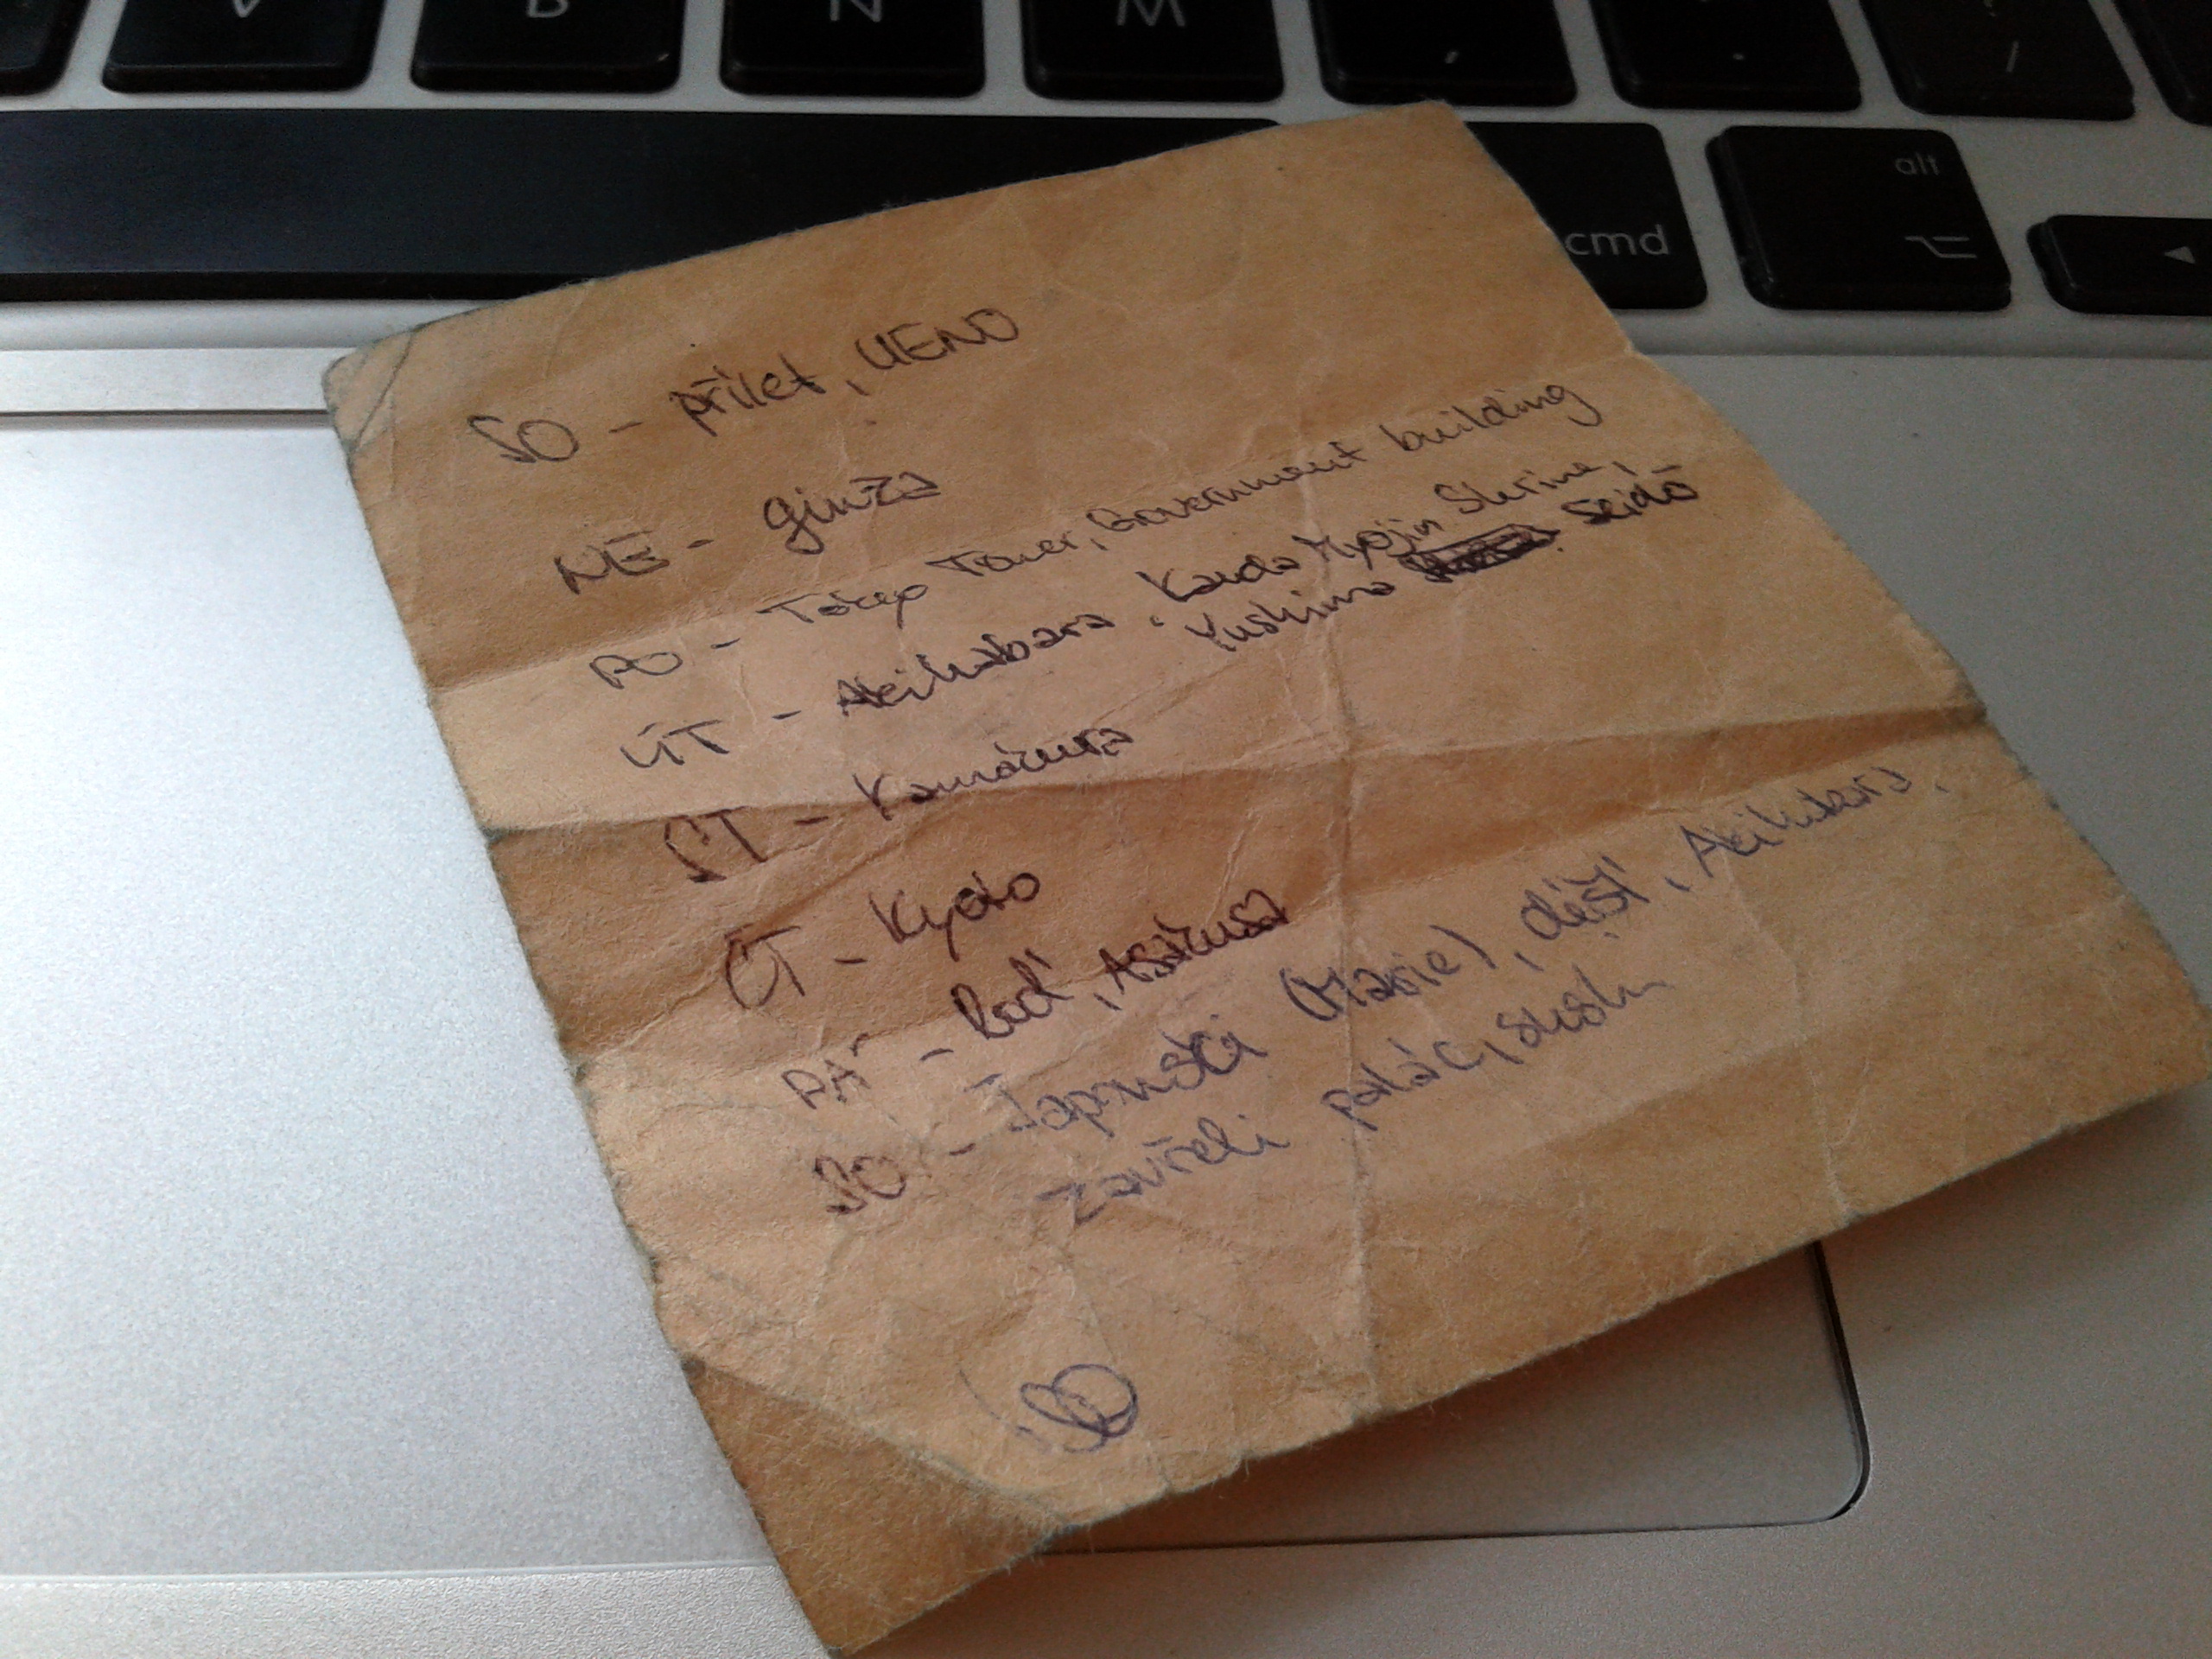 V B N M , . /
cmd alt
SO - přílet, UENO
NE - ginza
PO - Tokyo Tower, Government building
ÚT - Akihabara, Kanda Myojin Shrine,
Yushima Seidō
ST - Kamakura
ČT - Kyoto
PÁ - Asakusa
SO - Japonští (Marie), déšť, Akihabara,
zavřeli palác, sushi